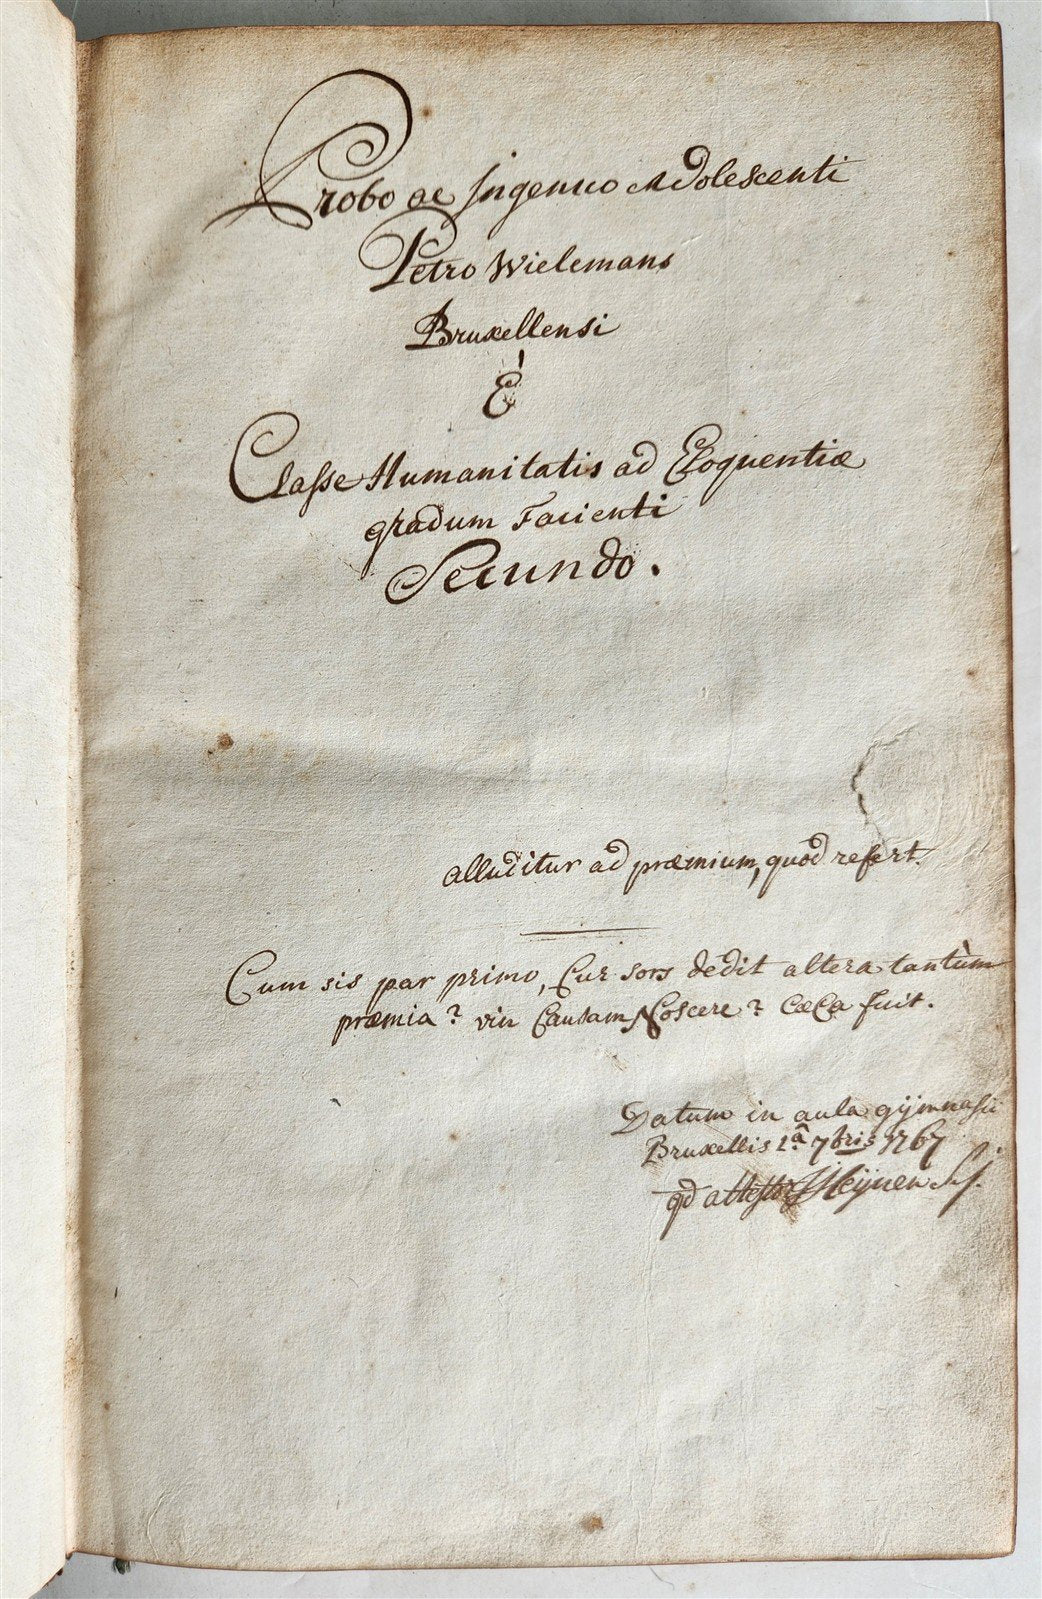 Probo ac Ingenuo Adolescenti
Petro Wielemans
Bruxellensi
È
Classe Humanitatis ad Eloquentiæ
gradum Facienti
Secundo.
alluditur ad præmium, quod refert.
Cum sis par primo, Cur sors dedit altera tantùm
præmia? vin Causam Noscere? CæCa fuit.
Datum in aula gijmnasii
Bruxellis 1ª 7bris 1767
qd attestor Heijnen S.J.